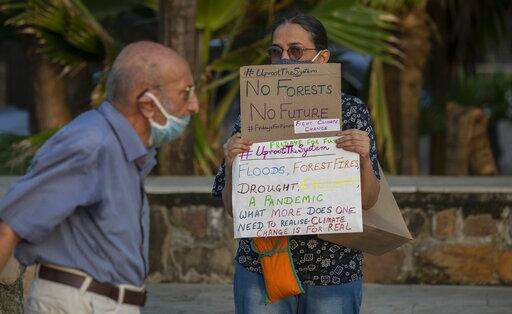 #UprootTheSystem
No Forests
No Future
#FridaysForFuture
Fight Climate
Change
Fridays For Fu
#UprootTheSystem
Floods, Forest Fires,
Drought,
A Pandemic
What more does one
need to realise Climate
Change is for real